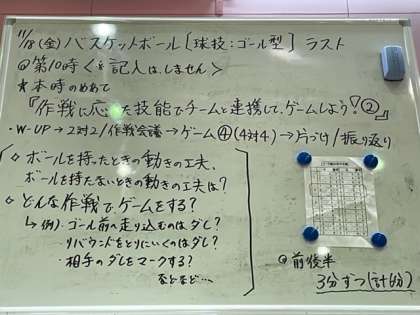 11/18(金)バスケットボール〔球技:ゴール型〕ラスト
@第10時<を記入は、しません>
★本時のめあて
『作戦に応じた技能でチームと連携して、ゲームしよう!②』
・W-UP→2対2/作戦会議→ゲーム④(4対4)→片づけ/振り返り
◇ボールを持ったときの動きの工夫、
ボールを持たないときの動きの工夫は?
◇どんな作戦で、ゲームをする?
↳例)・ゴール前へ走り込むのはダレ?
・リバウンドをとりにいくのはダレ?
・相手のダレをマークする?
などなど…
@前後半
3分ずつ(計6分)